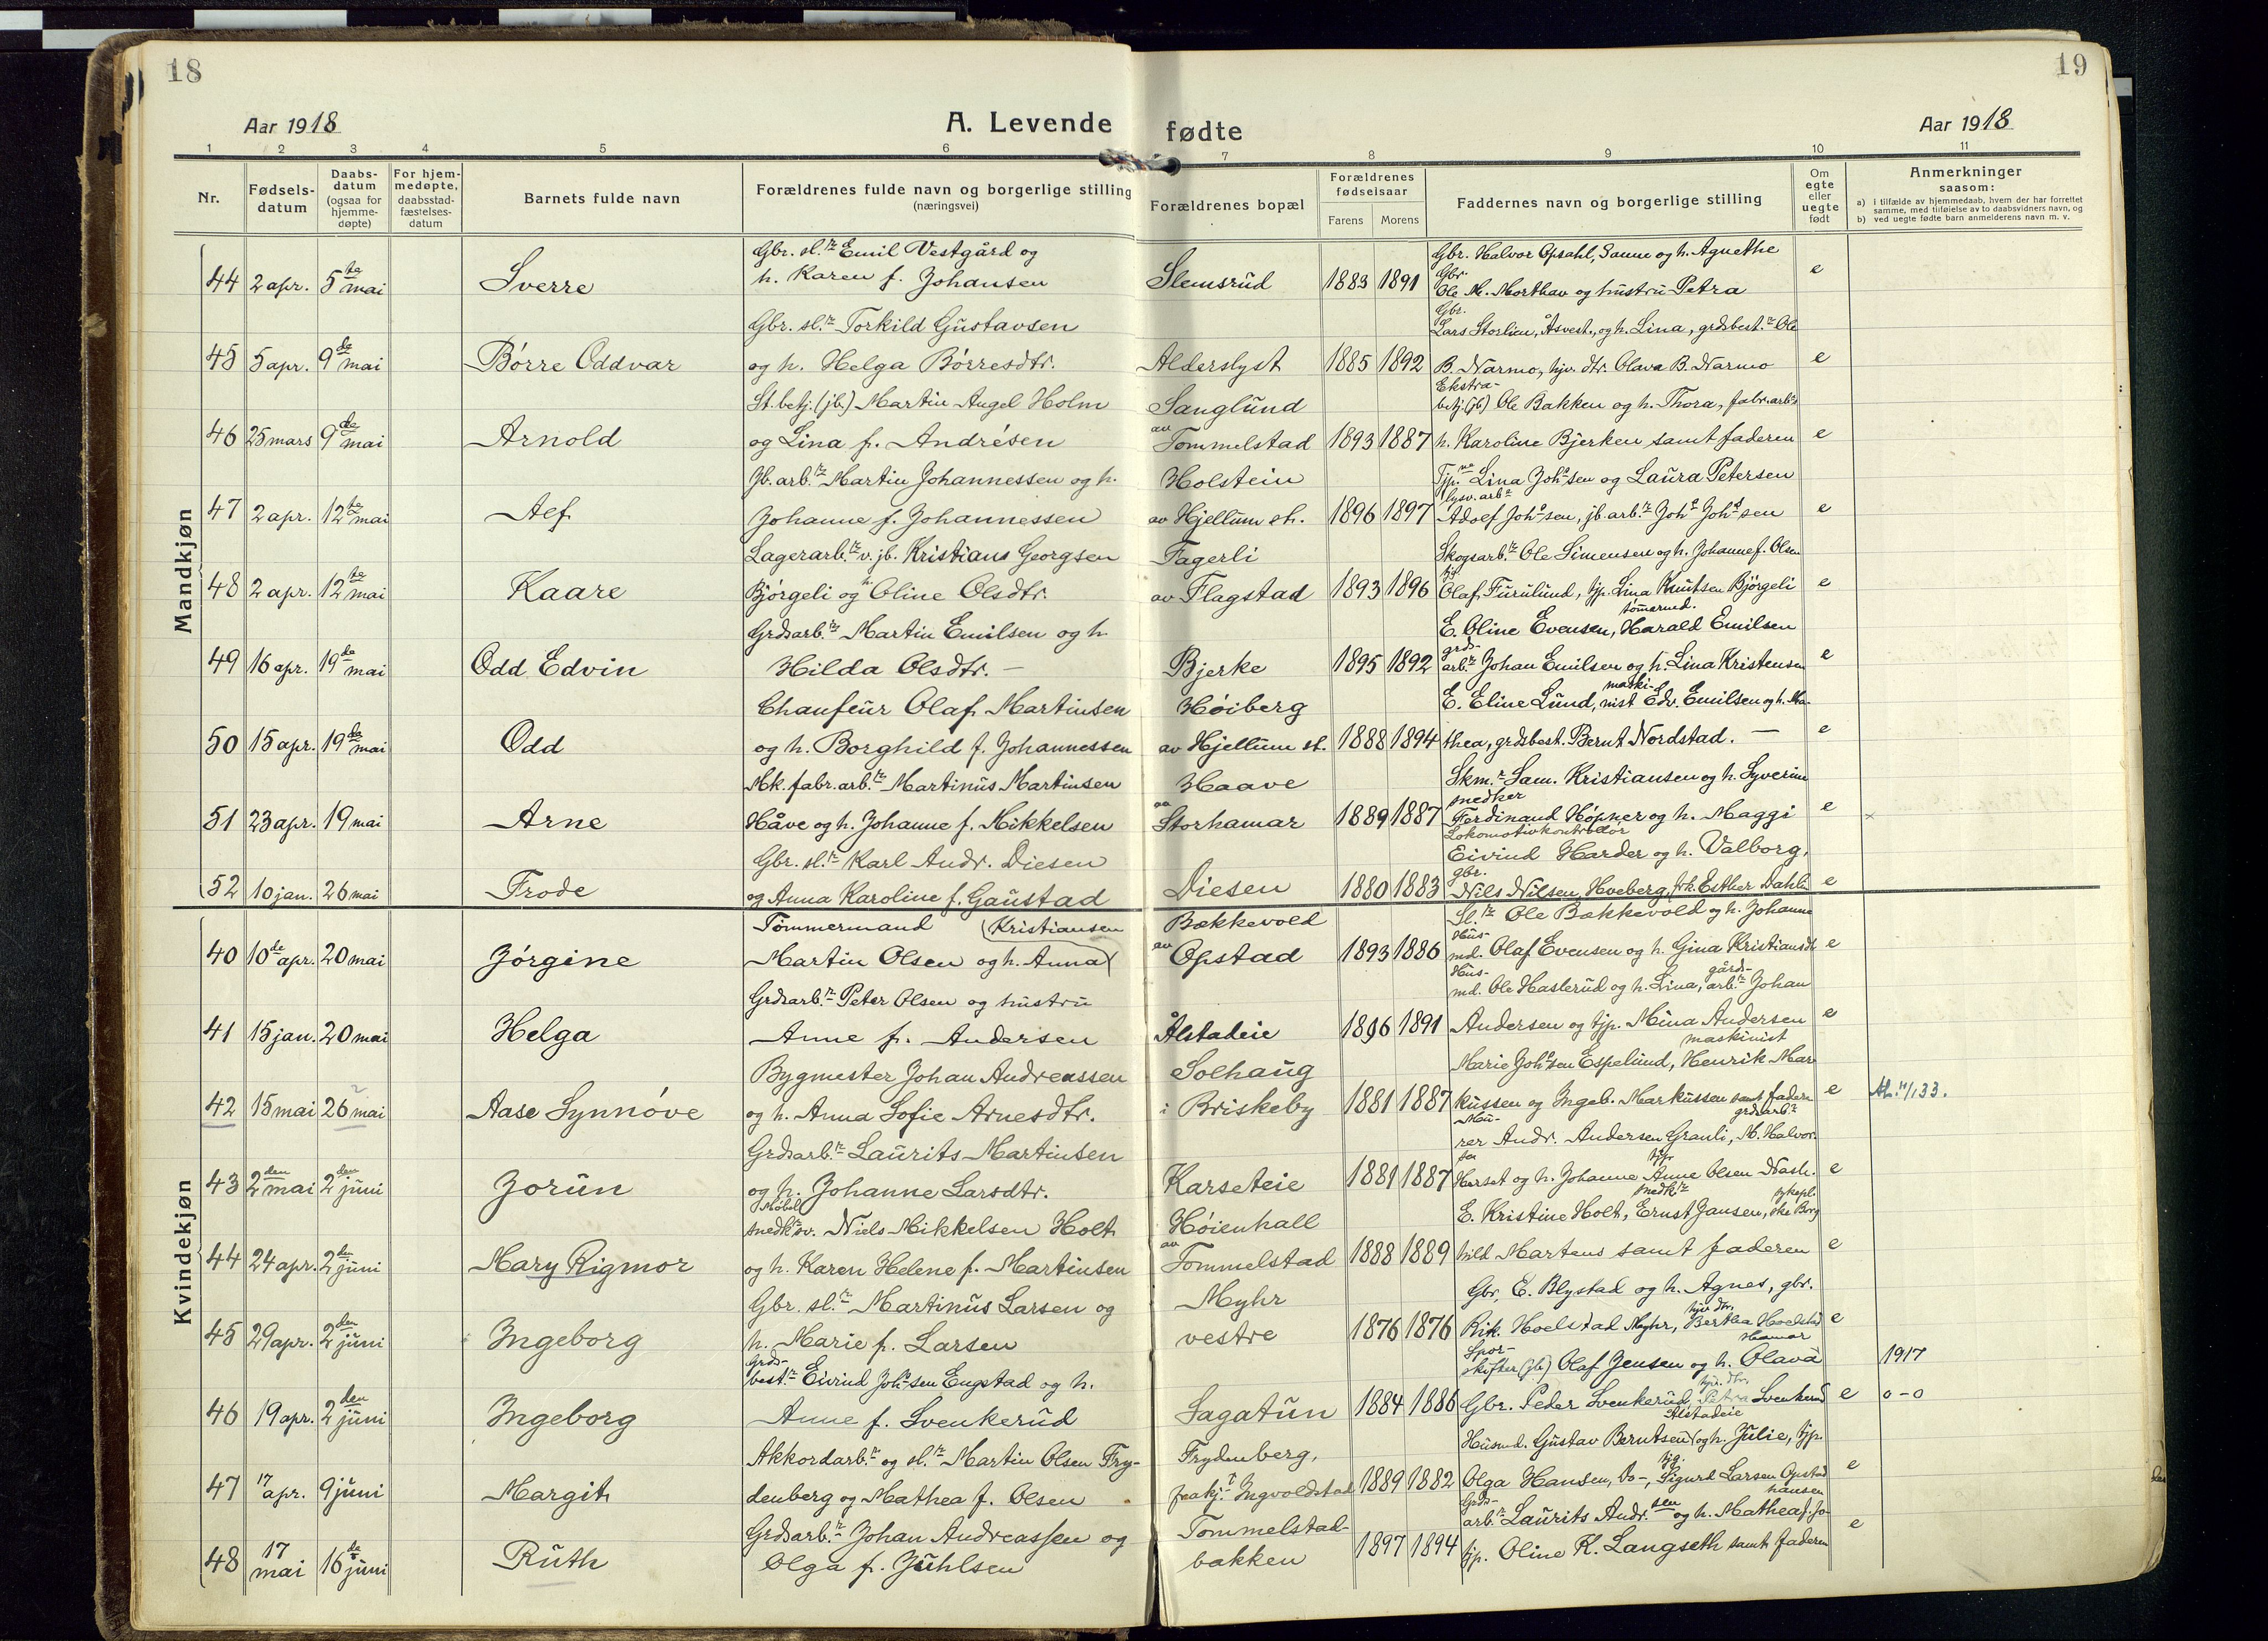 18
19
Aar 1918
A. Levende fødte
Aar 1918
1 2 3 4 5 6 7 8 9 10 11
Nr.
Fødsels-
datum
Daabs-
datum
(ogsaa for
hjemme-
døpte)
For hjem-
medøpte,
daabsstad-
fæstelses-
datum
Barnets fulde navn
Forældrenes fulde navn og borgerlige stilling
(næringsvei)
Forældrenes bopæl
Forældrenes
fødselsaar
Farens Morens
Faddernes navn og borgerlige stilling
Om
egte
eller
uegte
født
Anmerkninger
saasom:
a) i tilfælde av hjemmedaab, hvem der har forrettet
samme, med tilføielse av to daabsvidners navn, og
b) ved uegte fødte barn anmelderens navn m. v.
Mandkjøn
Gbr. sl.rz Emil Vestgård og
Gbr. Halvor Opsahl, Sanne og h. Agnethe
Gbr.
44 2 apr. 5te mai Sverre h. Karen f. Johansen Slemsrud 1883 1891 Ole M. Morthav og hustru Petra e
Gbr.
Gbr. sl.rz Torkild Gustavsen Lars Storlien, Åsvest., og h. Lina, grdsbest.rz Ole
45 5 apr. 9de mai Børre Oddvar og h. Helga Børresdtr. Alderslyst 1885 1892 B. Narmo, hjv. dtr. Olava B. Narmo e
Ekstra-
St. betj. (jb.) Martin Angel Holm Sanglund betj. (jb) Ole Bakken og h. Thora, fabr.arb.s
46 25 mars 9de mai Arnold og Lina f. Andrésen av Tommelstad 1893 1887 h. Karoline Bjerken samt faderen e
Jb. arb.rz Martin Johannessen og h. Holstein Tjp.ne Lina Johs.sen og Laura Petersen
lysv. arb.r
47 2 apr. 12te mai Alf Johanne f. Johannessen av Hjellum st. 1896 1897 Adolf Johs.sen, jb. arb.rz Johs Johs.sen e
Lagerarb.rz v. jb. Kristians Georgsen Fagerli Skogsarb.rz Ole Simensen og h. Johanne f. Olsen
48 2 apr. 12te mai Kaare Bjørgeli og h. Oline Olsdtr. av Flagstad 1893 1896 Olaf Furulund, tjp. Lina Knutsen Bjørgeli e
tømermd.
Grdsarb.rz Martin Emilsen og h. E. Oline Evensen, Harald Emilsen
grds-
49 16 apr. 19de mai Odd Edvin Hilda Olsdtr. — Bjerke 1895 1892 arb.rz Johan Emilsen og h. Lina Kristensen e
maski-
Chaufeur Olaf Martinsen Høiberg E. Eline Lund, nist Edv. Emilsen og h. Ma-
50 15 apr. 19de mai Odd og h. Borghild f. Johannessen av Hjellum st. 1888 1894 thea, grdsbest. Bernt Nordstad. — e
Mk. fabr.arb.rz Martinus Martinsen Haave Skm.r Sam. Kristiansen og h. Syverine
snedker
51 23 apr. 19 mai Arne Håve og h. Johanne f. Mikkelsen av Storhamar 1889 1887 Ferdinand Høpner og h. Maggi e ×
Lokomotivkontrollør
Gbr. sl.rz Karl Andr. Diesen Eivind Harder og h. Valborg,
gbr.
52 10 jan. 26 mai Frode og Anna Karoline f. Gaustad Diesen 1880 1883 Nils Nilsen Hveberg, frk. Esther Dahl e
Kvindekjøn
Tømmermand (Kristiansen Bækkevold Sl.rz Ole Bækkevold og h. Johanne
Hus-
40 10de apr. 20 mai Jørgine Martin Olsen og h. Anna av Opstad 1893 1886 md. Olaf Evensen og h. Gina Kristiansdtr e
Hus- gårds-
Grdsarb.rz Peter Olsen og hustru md. Ole Haslerud og h. Lina, arb.rz Johan
41 15 jan. 20 mai Helga Anne f. Andersen Ålstadeie 1896 1891 Andersen og tjp. Mina Andersen e
maskinist
Bygmester Johan Andreassen Solhaug Marie Johs.sen Espelund, Henrik Mar-
42 15 mai 26 mai Aase Synnøve og h. Anna Sofie Arnesdtr. i Briskeby 1881 1887 kussen og Ingeb. Markussen samt fadern e
Mu- grdsarb.r
Grdsarb.rz Laurits Martinsen rer Andr. Andersen Granli, M. Halvor-
sen tjp.
43 2den mai 2den juni Jorun og h. Johanne Larsdtr. Karseteie 1881 1887 Harset og h. Johanne Anne Olsen Nash. e
Møbel snedk.rz sykepl.
snedk. sv. Niels Mikkelsen Holt Høienhall E. Kristine Holt, Ernst Jansen, ske Borg
44 24 apr. 2den juni Mary Rigmor og h. Karen Helene f. Martinsen av Tommelstad 1888 1889 hild Martens samt faderen e
Gbr. sl.rz Martinus Larsen og Myhr Gbr. E. Blystad og h. Agnes, gbr.
hjv. dtr.
45 29 apr. 2den juni Ingeborg h. Marie f. Larsen vestre 1876 1876 Rik. Hoelstad Myhr, Bertha Hoelstad e
Spor- Hamar
Grds-
best.rz Eivind Johs.sen Engstad og h. skifter (jb) Olaf Jensen og h. Olava 1917
hjv. dtr.
46 19 apr. 2den juni Ingeborg Anne f. Svenkerud Sagatun 1884 1886 Gbr. Peder Svenkerud, Petra Svenkerud e o-o
Alstadeie
Akkordarb.r og sl.rz Martin Olsen Fry- Frydenberg, Husmd. Gustav Berntsen og h. Julie, tjp.
tjg.
47 17 apr. 9 juni Margit denberg og Mathea f. Olsen Ingvoldstad 1889 1882 Olga Hansen, Do-, Sigurd Larsen Opstad e
Grds- hansen
Grdsarb.rz Johan Andreassen og Tommelstad- arb.rz Laurits Andr.sen og h. Mathea f. Jo-
48 17 mai 16de juni Ruth Olga f. Juhlsen bakken 1897 1894 tjp. Oline K. Langseth samt faderen e